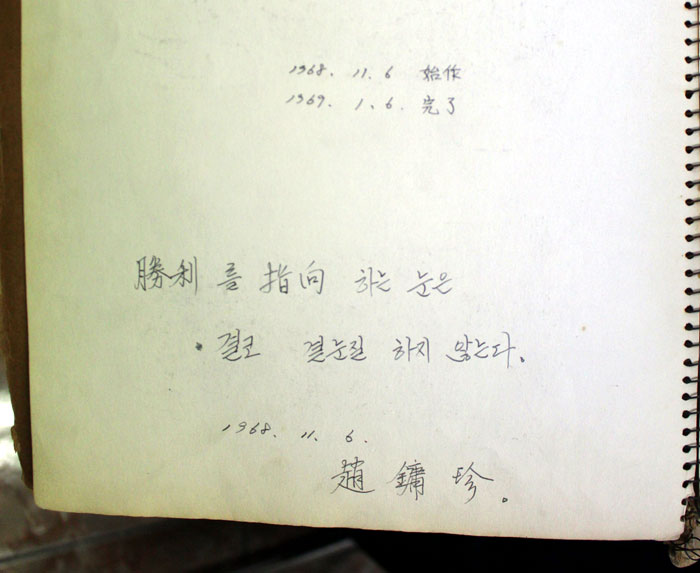 1968. 11. 6 始作
1969. 1. 6. 完了
勝利 를 指向 하는 눈은
결코 곁눈질 하지 않는다.
1968. 11. 6.
趙鏞珍.